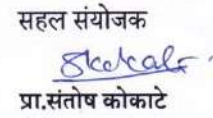 सहल संयोजक
प्रा.संतोष कोकाटे